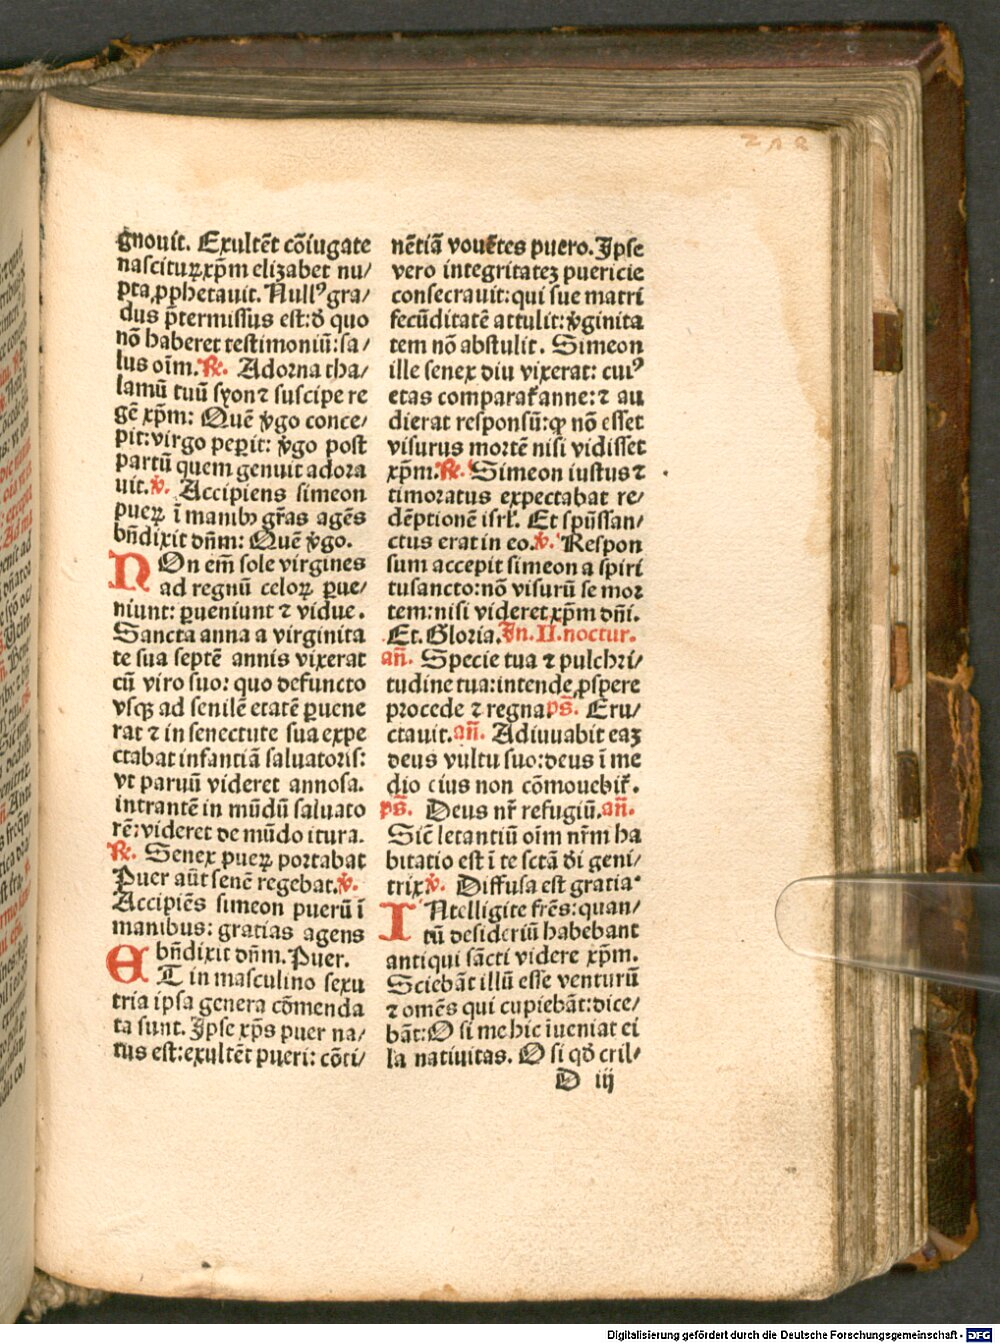 gnouit. Exultēt cōiugate
nasciturꝝ xp̄m elizabet nu/
pta ꝓphetauit. Null⁹ gra/
dus p̄termissus est: ð quo
nō haberet testimoniū: sa/
lus oīm. ℟. Adorna tha/
lamū tuū syon ⁊ suscipe re
gē xp̄m: Quē v̄go conce/
pit: virgo peꝑit: v̄go post
partū quem genuit adora
uit. ℣. Accipiens simeon
pueꝝ ī manibꝰ gr̄as agēs
bn̄dixit dn̄m: Quē v̄go.
NOn em̄ sole virgines
ad regnū celoꝝ ꝑue/
niunt: ꝑueniunt ⁊ vidue.
Sancta anna a virginita
te sua septē annis vixerat
cū viro suo: quo defuncto
vsqꝫ ad senilē etatē ꝑuene
rat ⁊ in senectute sua expe
ctabat infantiā saluatoris:
vt paruū videret annosa.
intrantē in mūdū saluato
rē: videret de mūdo itura.
℟. Senex pueꝝ portabat
Puer aūt senē regebat. ℣.
Accipiēs simeon puerū ī
manibus: gratias agens
bn̄dixit dn̄m. Puer.
ET in masculino sexu
tria ipsa genera cōmenda
ta sunt. Ipse xp̄s puer na/
tus est: exultēt pueri: cōti/
nētiā vouētes puero. Ipse
vero integritateꝫ puericie
consecrauit: qui sue matri
fecūditatē attulit: v̄ginita
tem nō abstulit. Simeon
ille senex diu vixerat: cui⁹
etas comparat̄ anne: ⁊ au
dierat responsū: ꝙ nō esset
visurus mortē nisi vidisset
xp̄m. ℟. Simeon iustus ⁊
timoratus expectabat re/
dēptionē isrl̄. Et spūssan/
ctus erat in eo. ℣. Respon
sum accepit simeon a spiri
tusancto: nō visurū se mor
tem: nisi videret xp̄m dn̄i.
Et. Gloria. In. II. noctur.
añ. Specie tua ⁊ pulchri/
tudine tua: intende ꝓspere
procede ⁊ regna. ps̄. Eru/
ctauit. añ. Adiuuabit eaꝫ
deus vultu suo: deus ī me
dio eius non cōmouebit̄.
ps̄. Deus nr̄ refugiū. añ.
Sic̄ letantiū oīm nr̄m ha
bitatio est ī te sctā ði geni/
trix ℣. Diffusa est gratia
INtelligite fr̄es: quan/
tū desideriū habebant
antiqui sācti videre xp̄m.
Sciebāt illū esse venturū
⁊ omēs qui cupiebāt: dice/
bāt: O si me hic iueniat ei
la natiuitas. O si qð cril/
D iij
Digitalisierung gefördert durch die Deutsche Forschungsgemeinschaft - DFG